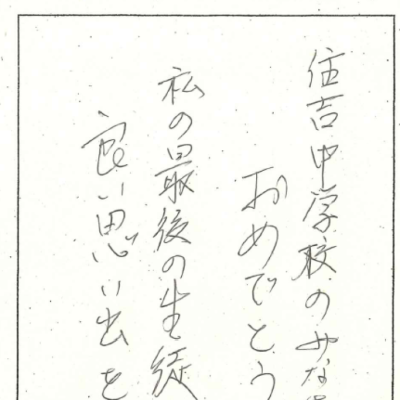 住吉中学校のみな
おめでとう
私の最後の生徒
良い思い出を